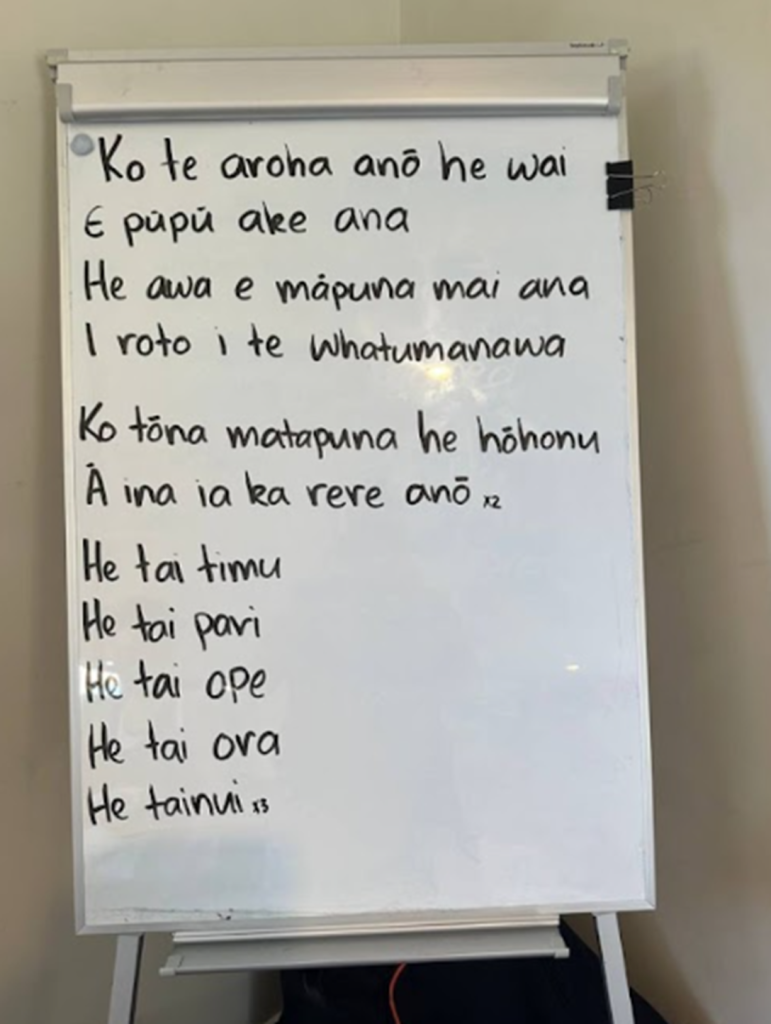 Ko te aroha anō he wai
E pūpū ake ana
He awa e māpuna mai ana
I roto i te whatumanawa
Ko tōna matapuna he hōhonu
Ā ina ia ka rere anō x2
He tai timu
He tai pari
He tai ope
He tai ora
He tainui x3